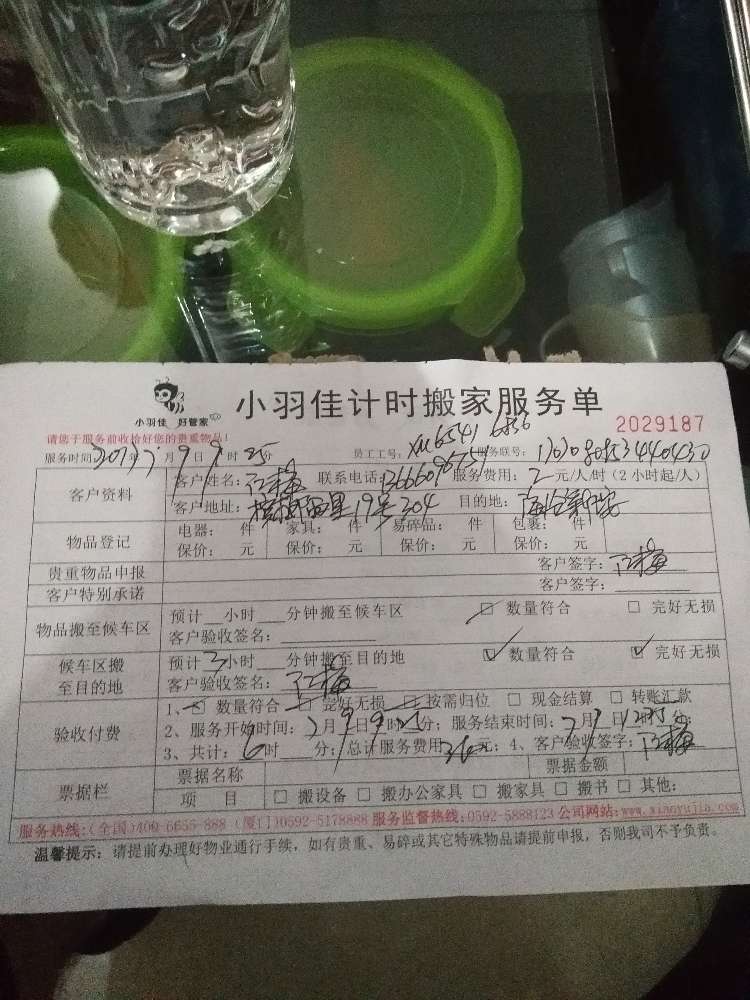 小羽佳 好管家
小羽佳计时搬家服务单
2029187
请您于服务前收拾好您的贵重物品!
服务时间: 年 7 月 9 日 9 时 25 分 员工工号: 服务联号:
客户资料
客户姓名: 联系电话: 服务费用: 2 元/人/时(2小时起/人)
客户地址: 19号304 目的地:
物品登记
电器: 件 家具: 件 易碎品: 件 包裹: 件
保价: 元 保价: 元 保价: 元 保价: 元
贵重物品申报 客户签字:
客户特别承诺 客户签字:
物品搬至候车区
预计__小时___分钟搬至候车区 □ 数量符合 □ 完好无损
客户验收签名:
候车区搬至目的地
预计 3 小时___分钟搬至目的地 □ 数量符合 □ 完好无损
客户验收签名:
验收付费
1、□ 数量符合 □ 完好无损 □ 按需归位 □ 现金结算 □ 转账汇款
2、服务开始时间: 7月9日9时25分; 服务结束时间: 7月9日12时 分;
3、共计: 6时 分; 总计服务费用 元; 4、客户验收签字:
票据栏
票据名称 票据金额
项 目 □ 搬设备 □ 搬办公家具 □ 搬家具 □ 搬书 □ 其他:
服务热线:(全国)400-6655-888 (厦门)0592-5178888 服务监督热线:0592-5888123 公司网站:www.xiaoyujia.com
温馨提示: 请提前办理好物业通行手续,如有贵重、易碎或其它特殊物品请提前申报,否则我司不予负责。